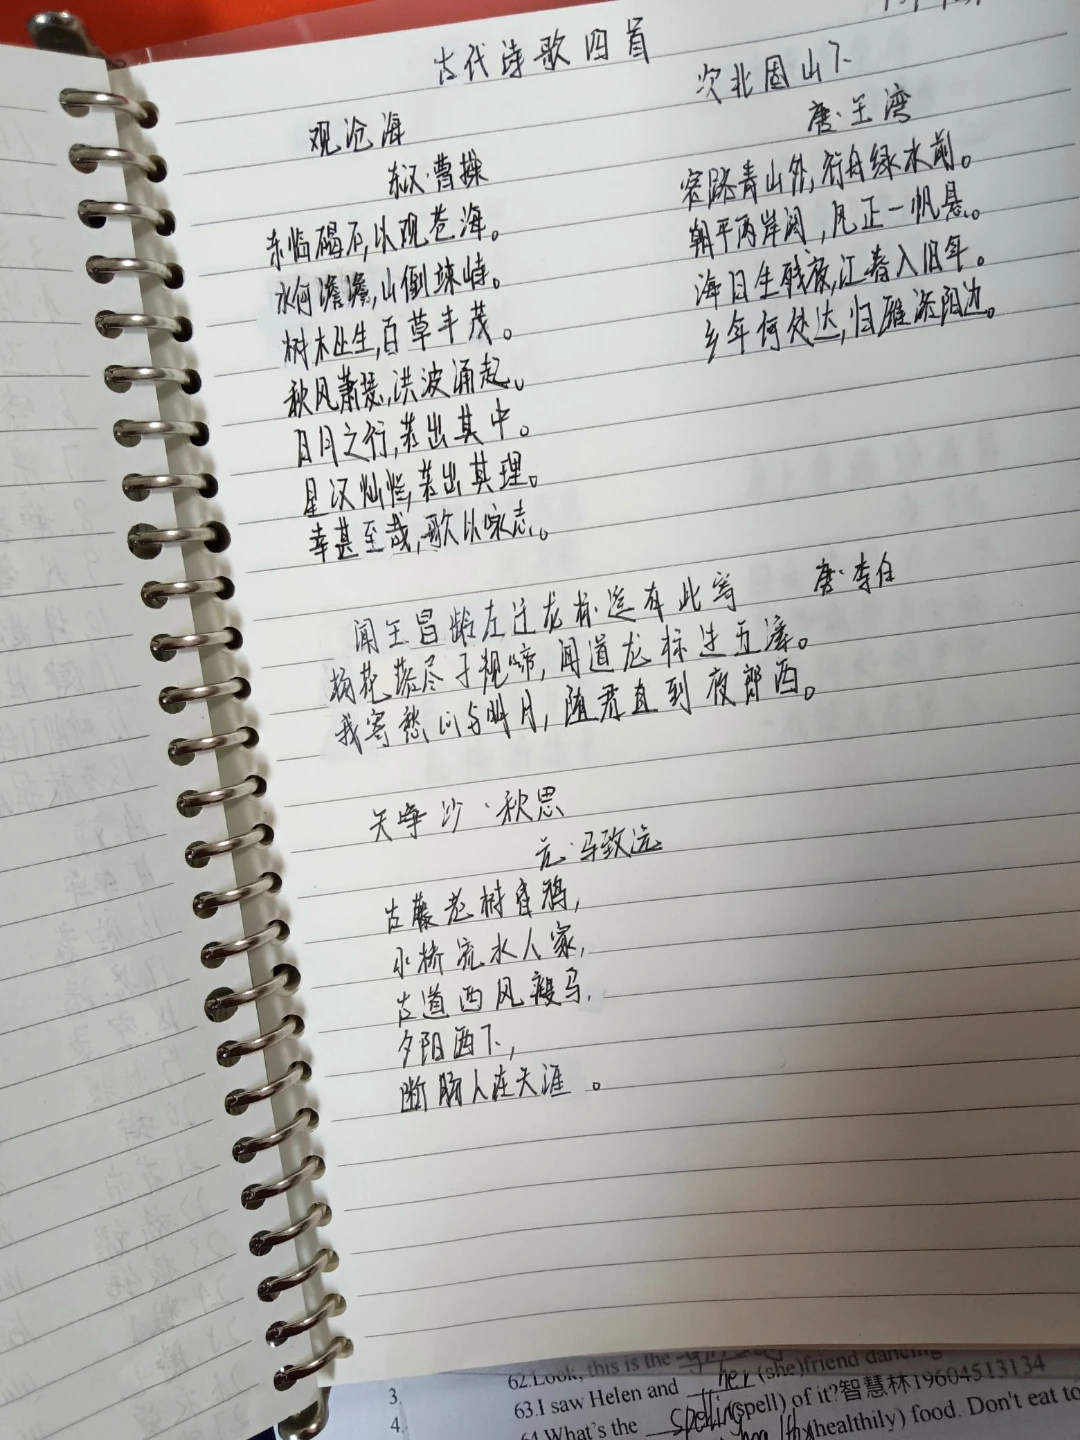 古代诗歌四首
观沧海
东汉·曹操
东临碣石,以观苍海。
水何澹澹,山倒竦峙。
树木丛生,百草丰茂。
秋风萧瑟,洪波涌起。
日月之行,若出其中。
星汉灿烂,若出其理。
幸甚至哉,歌以咏志。
次北固山下
唐·王湾
客路青山外,行舟绿水前。
朝平两岸阔,风正一帆悬。
海日生残夜,江春入旧年。
乡年何处达,归雁洛阳边。
闻王昌龄左迁龙标遥有此寄 唐·李白
杨花落尽子规啼,闻道龙标过五溪。
我寄愁心与明月,随君直到夜郎西。
天净沙·秋思
元·马致远
古藤老树昏鸦,
小桥流水人家,
古道西风瘦马,
夕阳西下,
断肠人在天涯。
62.Look, this is the
3.
63.I saw Helen and her (she)friend dancing
4.
64.What's the spelling(spell) of it?智慧林19604513134
(healthily) food. Don't eat to